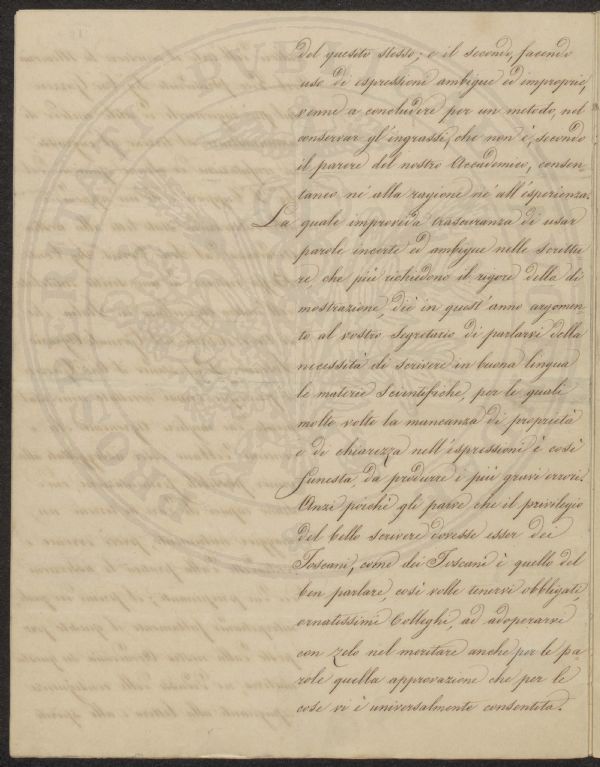 del quesito stesso; e il secondo, facendo
uso di espressioni ambigue ed improprie,
venne a concludere per un metodo, nel
conservar gl'ingrassi, che non è, secondo
il parere del nostro Accademico, consen-
taneo nè alla ragione nè all'esperienza.
La quale improvvida trascuranza di usar
parole incerte ed ambigue nelle scrittu
re che più richiedono il rigore della di
mostrazione, diè in quest'anno argomen-
to al vostro Segretario di parlarvi della
necessità di scrivere in buona lingua
le materie scientifiche, per le quali
molte volte la mancanza di proprietà
e di chiarezza nell'espressioni è così
funesta, da produrre i più gravi errori.
Anzi poichè gli parve che il privilegio
del bello scrivere dovesse esser dei
Toscani, come dei Toscani è quello del
ben parlare, così volle tenervi obbligati,
ornatissimi Colleghi, ad adoperarvi
con zelo nel meritare anche per le pa-
role quella approvazione che per le
cose vi è universalmente consentita.
PROSPERITATI